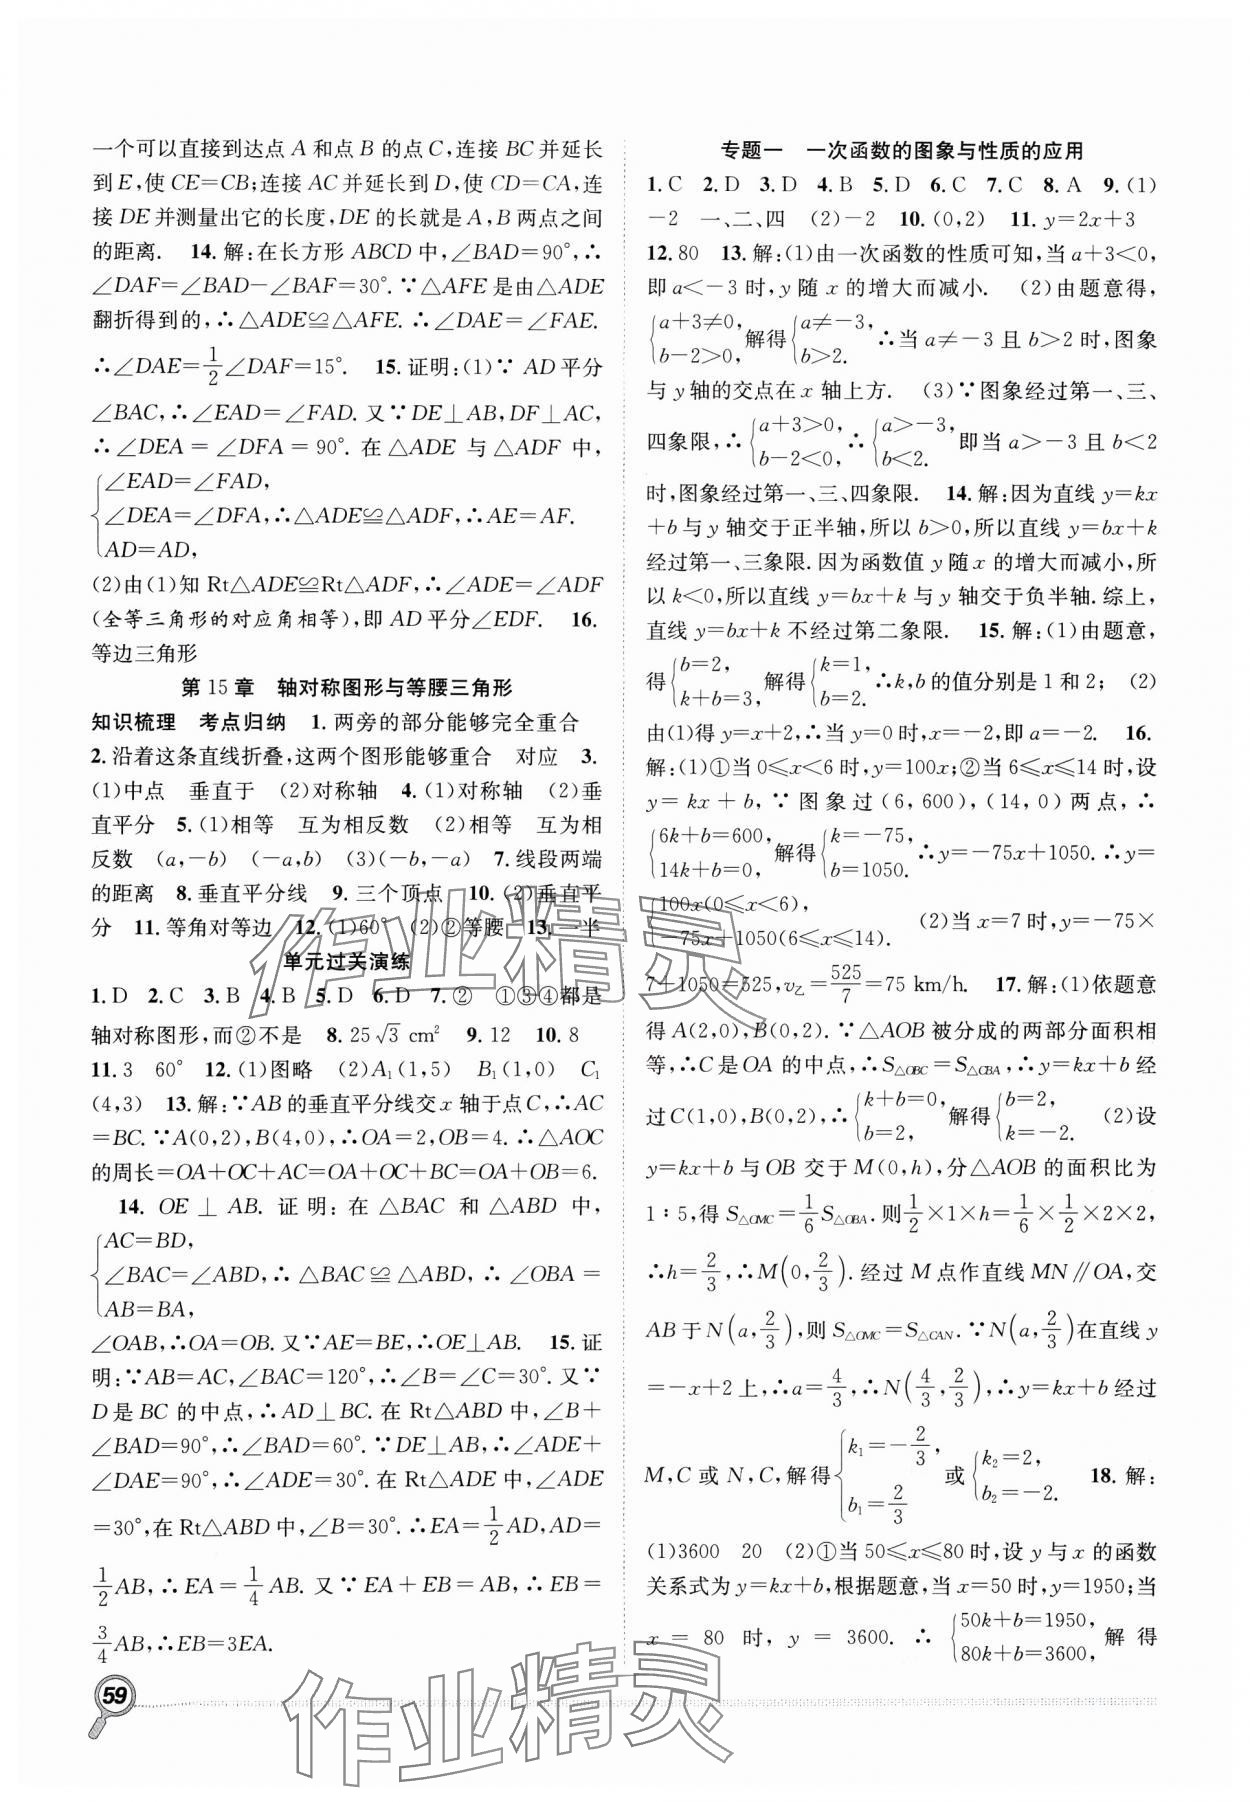 一个可以直接到达点 A 和点 B 的点 C,连接 BC 并延长
到 E,使 CE=CB;连接 AC 并延长到 D,使 CD=CA,连
接 DE 并测量出它的长度,DE 的长就是 A,B 两点之间
的距离. 14. 解:在长方形 ABCD 中,∠BAD=90°,∴
∠DAF=∠BAD−∠BAF=30°.∵△AFE 是由△ADE
翻折得到的,∴△ADE≌△AFE.∴∠DAE=∠FAE.
∴∠DAE=1/2∠DAF=15°. 15. 证明:(1)∵ AD 平分
∠BAC,∴∠EAD=∠FAD. 又∵DE⊥AB,DF⊥AC,
∴∠DEA=∠DFA=90°. 在△ADE 与△ADF 中,
{∠EAD=∠FAD,
∠DEA=∠DFA,∴△ADE≌△ADF,∴AE=AF.
AD=AD,
(2)由(1)知 Rt△ADE≌Rt△ADF,∴∠ADE=∠ADF
(全等三角形的对应角相等),即 AD 平分∠EDF. 16.
等边三角形
第 15 章 轴对称图形与等腰三角形
知识梳理 考点归纳 1. 两旁的部分能够完全重合
2. 沿着这条直线折叠,这两个图形能够重合 对应 3.
(1)中点 垂直于 (2)对称轴 4. (1)对称轴 (2)垂
直平分 5. (1)相等 互为相反数 (2)相等 互为相
反数 (a,−b) (−a,b) (3)(−b,−a) 7. 线段两端
的距离 8. 垂直平分线 9. 三个顶点 10. (2)垂直平
分 11. 等角对等边 12. (1)60° (2)②等腰 13. 一半
单元过关演练
1. D 2. C 3. B 4. B 5. D 6. D 7. ② ①③④都是
轴对称图形,而②不是 8. 25√3 cm² 9. 12 10. 8
11. 3 60° 12. (1)图略 (2)A₁(1,5) B₁(1,0) C₁
(4,3) 13. 解:∵AB 的垂直平分线交 x 轴于点 C,∴AC
=BC.∵A(0,2),B(4,0),∴OA=2,OB=4.∴△AOC
的周长=OA+OC+AC=OA+OC+BC=OA+OB=6.
14. OE⊥AB. 证明:在△BAC 和△ABD 中,
{AC=BD,
∠BAC=∠ABD,∴△BAC≌△ABD,∴∠OBA=
AB=BA,
∠OAB,∴OA=OB. 又∵AE=BE,∴OE⊥AB. 15. 证
明:∵AB=AC,∠BAC=120°,∴∠B=∠C=30°. 又∵
D 是 BC 的中点,∴AD⊥BC. 在 Rt△ABD 中,∠B+
∠BAD=90°,∴∠BAD=60°.∵DE⊥AB,∴∠ADE+
∠DAE=90°,∴∠ADE=30°. 在 Rt△ADE 中,∠ADE
=30°,在 Rt△ABD 中,∠B=30°.∴EA=1/2AD,AD=
1/2AB,∴EA=1/4AB. 又∵EA+EB=AB,∴EB=
3/4AB,∴EB=3EA.
专题一 一次函数的图象与性质的应用
1. C 2. D 3. D 4. B 5. D 6. C 7. C 8. A 9. (1)
−2 一、二、四 (2)−2 10. (0,2) 11. y=2x+3
12. 80 13. 解:(1)由一次函数的性质可知,当 a+3<0,
即 a<−3 时,y 随 x 的增大而减小. (2)由题意得,
{a+3≠0, b−2>0, 解得{a≠−3, b>2. ∴当 a≠−3 且 b>2 时,图象
与 y 轴的交点在 x 轴上方. (3)∵图象经过第一、三、
四象限,∴{a+3>0, b−2<0, ∴{a>−3, b<2. 即当 a>−3 且 b<2
时,图象经过第一、三、四象限. 14. 解:因为直线 y=kx
+b 与 y 轴交于正半轴,所以 b>0,所以直线 y=bx+k
经过第一、三象限. 因为函数值 y 随 x 的增大而减小,所
以 k<0,所以直线 y=bx+k 与 y 轴交于负半轴. 综上,
直线 y=bx+k 不经过第二象限. 15. 解:(1)由题意,
得{b=2, k+b=3, 解得{k=1, b=2. ∴k,b 的值分别是 1 和 2; (2)
由(1)得 y=x+2,∴当 y=0 时,x=−2,即 a=−2. 16.
解:(1)①当 0⩽x<6 时,y=100x;②当 6⩽x⩽14 时,设
y=kx+b,∵图象过(6,600),(14,0)两点,∴
{6k+b=600, 14k+b=0, 解得{k=−75, b=1050. ∴y=−75x+1050.∴y=
{100x(0⩽x<6), −75x+1050(6⩽x⩽14). (2)当 x=7 时,y=−75×
7+1050=525,v乙=525/7=75 km/h. 17. 解:(1)依题意
得 A(2,0),B(0,2).∵△AOB 被分成的两部分面积相
等,∴C 是 OA 的中点,∴S△OBC=S△CBA,∴y=kx+b 经
过 C(1,0),B(0,2),∴{k+b=0, b=2, 解得{b=2, k=−2. (2)设
y=kx+b 与 OB 交于 M(0,h),分△AOB 的面积比为
1∶5,得 S△OMC=1/6S△OBA. 则1/2×1×h=1/6×1/2×2×2,
∴h=2/3,∴M(0,2/3). 经过 M 点作直线 MN∥OA,交
AB 于 N(a,2/3),则 S△OMC=S△CAN.∵N(a,2/3)在直线 y
=−x+2 上,∴a=4/3,∴N(4/3,2/3),∴y=kx+b 经过
M,C 或 N,C,解得{k₁=−2/3, b₁=2/3 或{k₂=2, b₂=−2. 18. 解:
(1)3600 20 (2)①当 50⩽x⩽80 时,设 y 与 x 的函数
关系式为 y=kx+b,根据题意,当 x=50 时,y=1950;当
x=80 时,y=3600.∴{50k+b=1950, 80k+b=3600, 解得
59
作业精灵
作业精灵